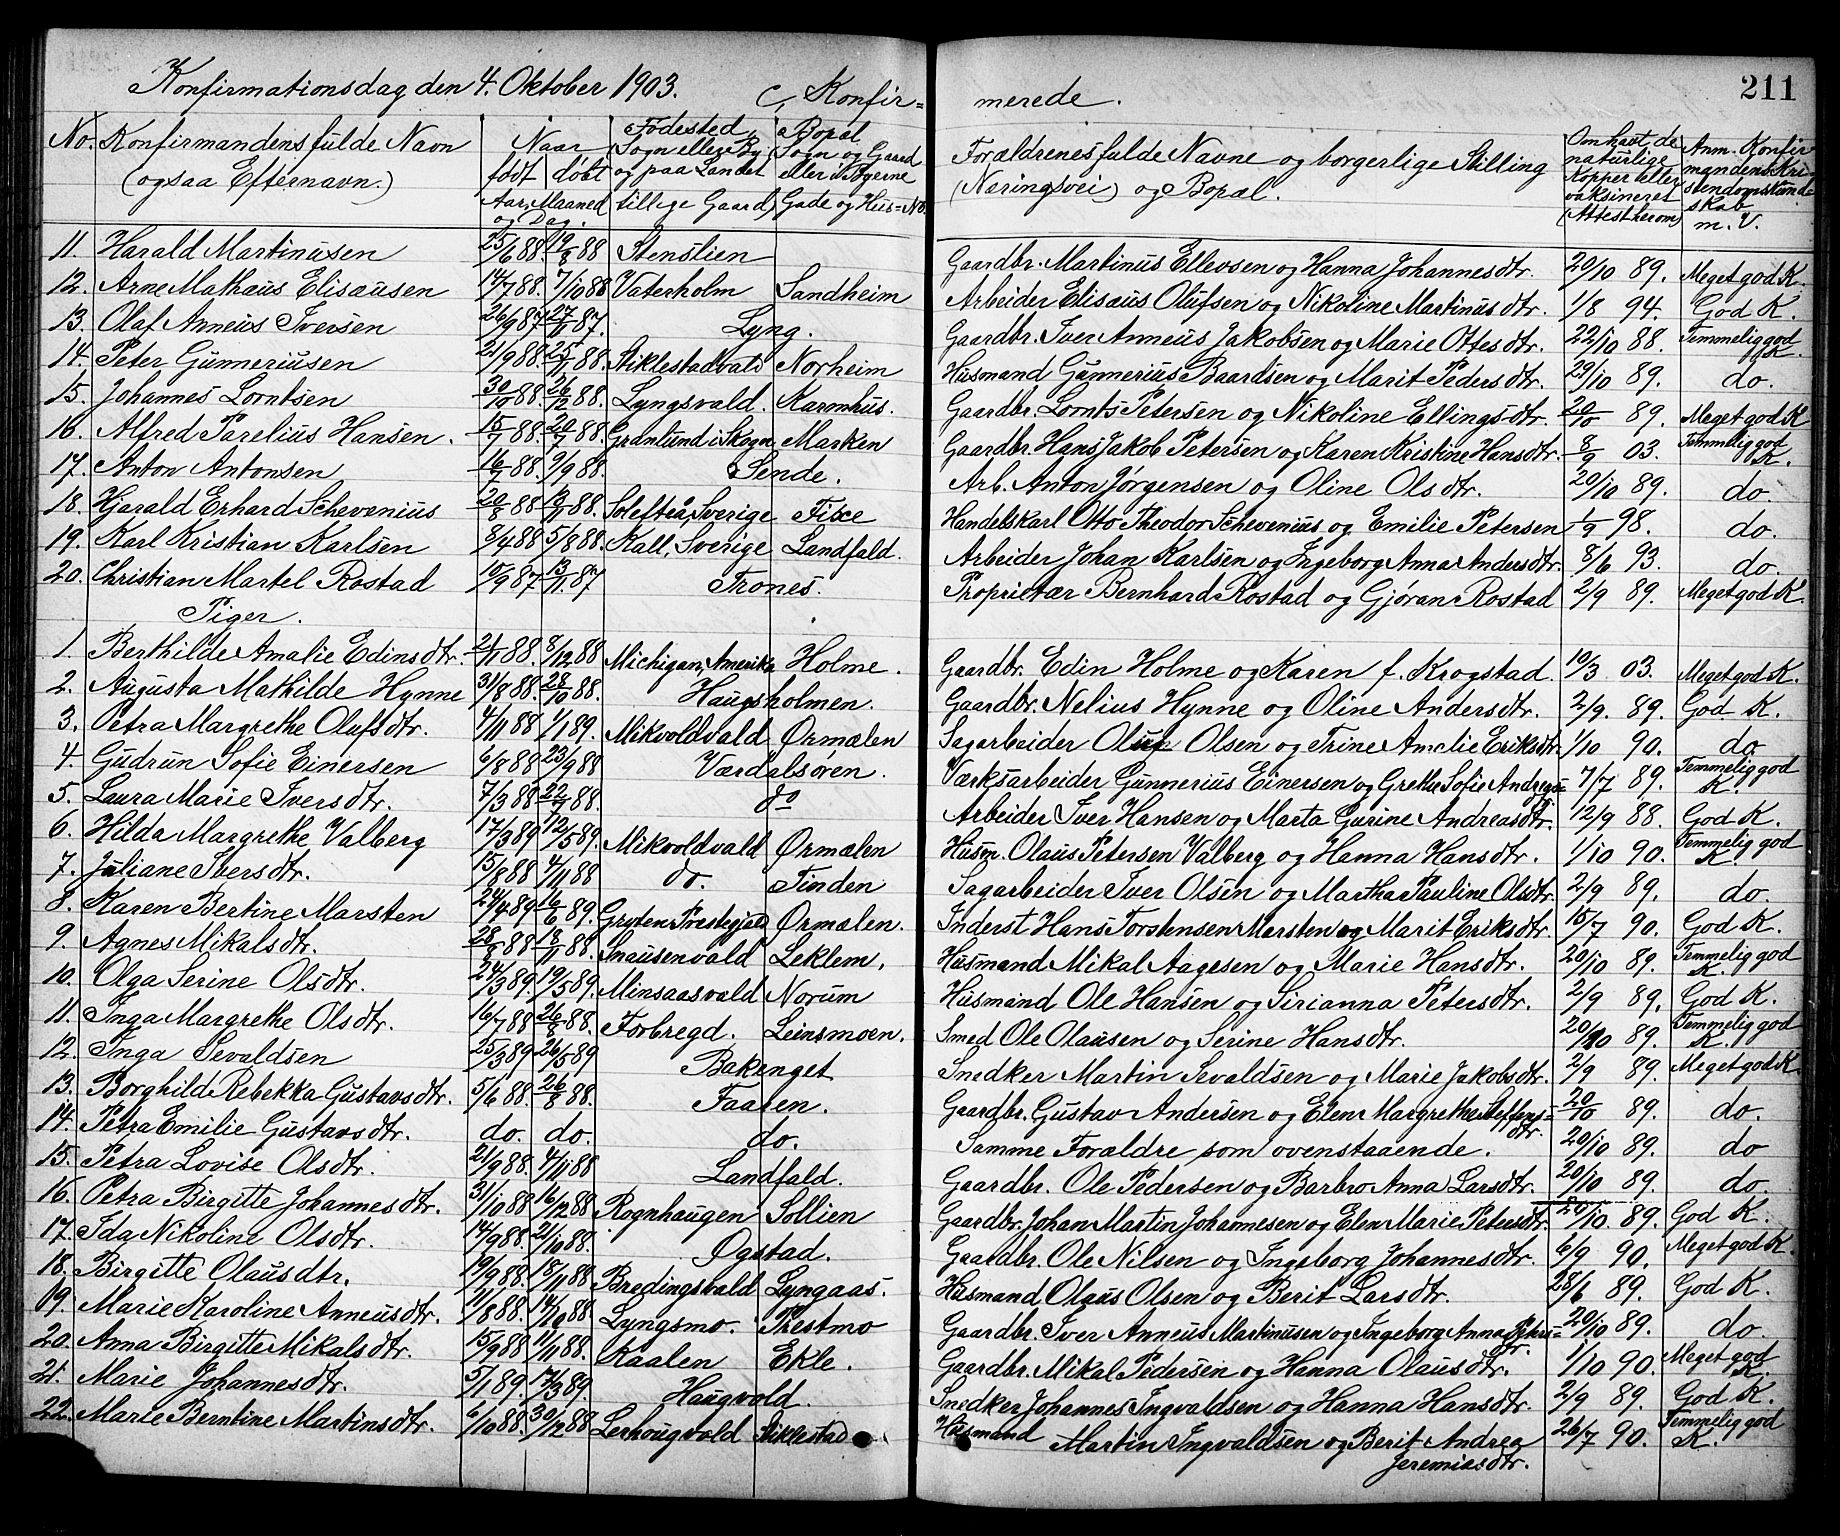 Konfirmationsdag den 4. Oktober 1903. C, Konfir= merede. 211
No. Konfirmandens fulde Navn (ogsaa Efternavn.) Naar født døbt Aar, Maaned og Dag. Fødested, Sogn eller By og paa Landet tillige Gaard Bopæl Sogn og Gaard eller i Byerne Gade og Hus=No. Forældrenes fulde Navne og borgerlige Stilling (Næringsvei) og Bopæl. Om havt de naturlige Kopper eller vaksineret (Attest herom) Anm. Konfirmandens Kristendomskundskab m. V.
11. Harald Martinusen 25/6 88. 19/8 88 Stenslien Gaardbr. Martinus Ellevsen og Hanna Johannesdtr. 20/10 89. Meget god K.
12. Arne Mathæus Elisæusen 14/7 88. 7/10 88 Vaterholm Sandheim Arbeider Elisæus Olufsen og Nikoline Martinusdtr. 1/8 94. God K.
13. Olaf Anneus Iversen 26/9 87 27/11 87. Lyng. Gaardbr. Iver Anneus Jakobsen og Marie Ottesdtr. 22/10 88. Temmelig god K.
14. Peter Gunneriusen 21/9 88. 25/11 88. Stiklestadvald Norheim Husmand Gunnerius Baardsen og Marit Pedersdtr. 29/10 89. do.
15. Johannes Lorntsen 30/10 88. 26/12 88. Lyngsvald. Karmhus. Gaardbr. Lornts Petersen og Nikoline Ellingsdtr. 20/10 89. Meget god K
16. Alfred Parelius Hansen. 15/7 88. 20/7 88. Grønlund i Skogn Marken Gaardbr. Hans Jakob Petersen og Karen Kristine Hansdtr. 8/9 03. Temmelig god K.
17. Anton Antonsen 16/7 88. 9/9 88. Sende. Arb. Anton Jørgensen og Oline Olsdtr. 20/10 89. do.
18. Hjarald Erhard Schevenius 20/8 88 13/11 88. Solefteå, Sverige Fixe Handelskarl Otto Theodor Schevenius og Emilie Petersen 1/9 98. do.
19. Karl Kristian Karlsen 3/4 88 5/8 88. Kall, Sverige Landfald. Arbeider Johan Karlsen og Ingeborg Anna Andersdtr. 8/6 93. do.
20. Christian Martel Rostad 10/9 87 13/11 87 Trones. Proprietær Bernhard Rostad og Gjøran Rostad 2/9 89. Meget god K.
Piger.
1. Berthilde Amalie Edinsdtr. 21/11 88. 8/12 88 Michigan, Amerika Holme. Gaardbr. Edin Holme og Karen f. Krogstad. 10/3 03. Meget god K.
2. Augusta Mathilde Hynne 31/8 88. 28/10 88. Haugsholmen. Gaardbr. Nelius Hynne og Oline Andersdtr. 2/9. 89. God K.
3. Petra Margrethe Olufsdtr. 4/11 88 1/1 89. Mikvoldvald Ørmælen Sagarbeider Oluf Olsen og Trine Amalie Eriksdtr. 1/10 90. do
4. Gudrun Sofie Einersen 6/8 88 23/9 88 Værdalsøren. Værksarbeider Gunnerius Einersen og Grethe Sofie Andreas= dtr. 7/7 89. Temmelig god K.
5. Laura Marie Iversdtr. 7/3 88 22/7 88. do Arbeider Iver Hansen og Marta Gurine Andreasdtr. 12/9 88. God K.
6. Hilda Margrethe Valberg 17/3 89 12/5 89. Mikvoldvald Ørmælen Husm. Olaus Petersen Valberg og Hanna Hansdtr. 1/10 90. Temmelig god K.
7. Juliane Iversdtr. 15/8 88 4/11 88 do. Tinden Sagarbeider Iver Olsen og Martha Pauline Olsdtr. 2/9 89. do.
8. Karen Bertine Marsten 24/4 89 16/6 89. Gryten Præstegjeld Ørmælen. Inderst Hans Torstensen Marsten og Marit Eriksdtr. 15/7 90. God K.
9. Agnes Mikalsdtr. 28/8 88 18/11 88. Snausenvald Leklem. Husmand Mikal Aagesen og Marie Hansdtr. 20/10 89. Temmelig god K.
10. Olga Serine Olsdtr. 24/3 89. 19/5 89. Minsaasvald Norum Husmand Ole Hansen og Sirianna Petersdtr. 2/9 89. God K.
11. Inga Margrethe Olsdtr. 16/7 88 26/8 88. Forbregd. Leinsmoen. Smed Ole Olausen og Serine Hansdtr. 20/10 89. Temmelig god K.
12. Inga Sevaldsen 25/3 89 26/5 89 Bakenget Snedker Martin Sevaldsen og Marie Jakobsdtr. 2/9 89. Meget god K.
13. Borghild Rebekka Gustavsdtr. 5/6 88. 26/8 88. Faaren. Gaardbr. Gustav Andersen og Elen Margrethe Steffens= dtr. 20/10 89. do.
14. Petra Emilie Gustavsdtr. do. do. do. Samme Forældre som ovenstaaende. 20/10 89. do
15. Petra Lovise Olsdtr. 21/9 88. 4/11 88 Landfald. Gaardbr. Ole Pedersen og Barbro Anna Larsdtr. 20/10 89. do.
16. Petra Birgitte Johannesdtr. 31/10 88 16/12 88 Rognhaugen Sollien Gaardbr. Johan Martin Johannesen og Elen Marie Petersdtr. 20/10 89. God K.
17. Ida Nikoline Olsdtr. 14/9 88. 21/10 88. Øgstad. Gaardbr. Ole Nilsen og Ingeborg Johannesdtr. 6/9 90. Meget god K.
18. Birgitte Olausdtr. 19/9 88. 18/11 88 Bredingsvald Lyngaas. Husmand Olaus Olsen og Berit Larsdtr. 28/6 89. God K.
19. Marie Karoline Anneusdtr. 11/8 88. 14/10 88 Lyngsmo. Prestmo Gaardbr. Iver Anneus Martinusen og Ingeborg Anna Peters= dtr. 20/10 89. do.
20. Anna Birgitte Mikalsdtr. 15/9 88 11/11 88. Kaalen Ekle. Gaardbr. Mikal Pedersen og Hanna Olausdtr. 1/10 90. Meget god K.
21. Marie Johannesdtr. 5/1 89. 17/3 89. Haugvold. Snedker Johannes Ingvaldsen og Hanna Hansdtr. 2/9 89. God K.
22. Marie Berntine Martinsdtr. 6/10 88. 30/12 88 Lerhougvold Stiklestad Husmand Martin Ingvaldsen og Berit Andrea Jeremiasdtr. 26/7 90. Temmelig god K.